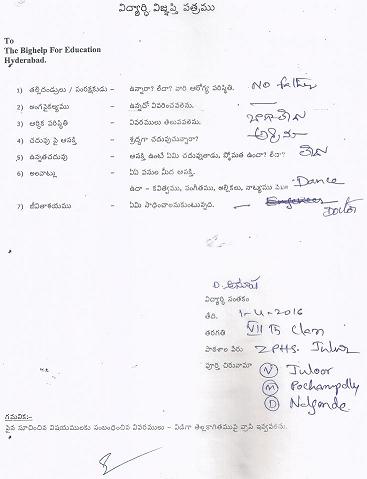 విద్యార్థి విజ్ఞప్తి పత్రము
To
The Bighelp For Education
Hyderabad.
1) తల్లిదండ్రులు / సంరక్షకుడు - ఉన్నారా? లేదా? వారి ఆరోగ్య పరిస్థితి. NO father
2) అంగవైకల్యము - ఉన్నదో వివరించవలెను.
3) ఆర్థిక పరిస్థితి - వివరములు తెలుపవలెను.
4) చదువు పై ఆసక్తి - శ్రద్ధగా చదువుచున్నారా?
5) ఉన్నతచదువు - ఆసక్తి ఉంటే ఏమి చదువుతాడు, స్తోమత ఉందా? లేదా?
6) అలవాట్లు - ఏఏ పనుల మీద ఆసక్తి.
ఉదా - కవిత్వము, సంగీతము, అల్లికలు, నాట్యము Dance
7) జీవితాశయము - ఏమి సాధించాలనుకుంటున్నది. Engineer Doctor
D.
విద్యార్థి సంతకం
తేది. 1-4-2016
తరగతి VII B Class
పాఠశాల పేరు ZPHS. Juloor
పూర్తి చిరునామా (V) Juloor
(M) Pochampally
(D) Nalgonda
గమనిక:-
పైన సూచించిన విషయములకు సంబంధించిన వివరములు - విడిగా తెల్లకాగితముపై వ్రాసి ఇవ్వవలెను.